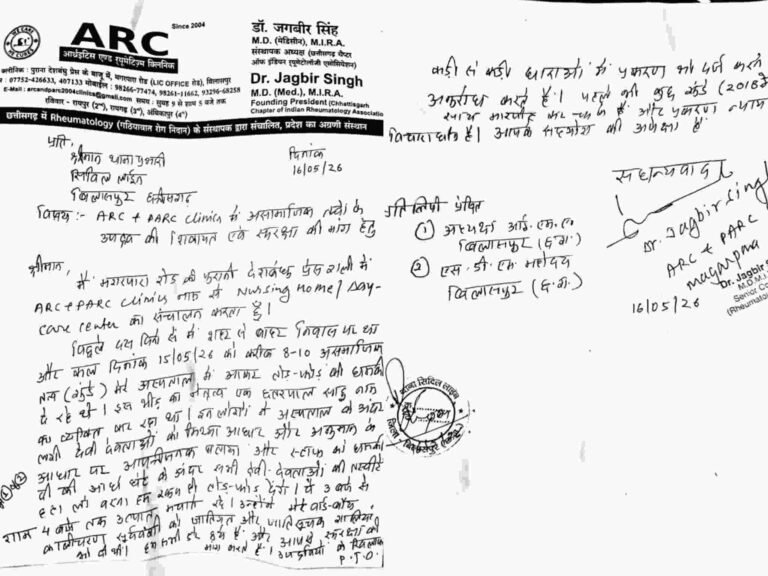 ARC
Since 2004
आर्थराइटिस एण्ड रुमेटिज्म क्लिनिक
क्लीनिक : पुराना देशबंधु प्रेस के बाजू में, मगरपारा रोड (LIC OFFICE रोड) बिलासपुर
07752-426633, 407133 मोबाईल : 98266-77474, 98261-11662, 93296-68258
E-mail : arcandparc2004clinics@gmail.com, समय : सुबह 9 से शाम 5 बजे तक
रविवार - रायपुर (2nd), रायगढ़ (3rd), अंबिकापुर (4th)
डॉ. जगबीर सिंह
M.D. (मेडिसीन), M.I.R.A.
संस्थापक अध्यक्ष (छत्तीसगढ़ चैप्टर
ऑफ इंडियन रयूमेटोलॉजी एसोसियेशन)
Dr. Jagbir Singh
M.D. (Med.), M.I.R.A.
Founding President (Chhattisgarh
Chapter of Indian Rheumatology Association
छत्तीसगढ़ में Rheumatology (गठियावात रोग निदान) के संस्थापक द्वारा संचालित, प्रदेश का अग्रणी संस्थान
प्रति,
श्रीमान थाना प्रभारी
सिविल लाईन
बिलासपुर छत्तीसगढ़
दिनांक
16/05/26
विषय :- ARC + PARC Clinics में असामाजिक तत्वों के
उपद्रव की शिकायत एवं सुरक्षा की मांग हेतु
श्रीमान,
मैं मगरपारा रोड की पुरानी देशबंधु प्रेस गली में
ARC + PARC Clinics नाम से Nursing Home / Day-
care center का संचालन करता हूँ।
पिछले दस दिनों से मैं शहर से बाहर निवास पर था
और कल दिनांक 15/05/26 को करीब 8-10 असामाजिक
तत्व (गुंडे) मेरे अस्पताल में आकर तोड़-फोड़ की धमकी
दे रहे थे। इस भीड़ का नेतृत्व एक छत्रपाल साहू नाम
का व्यक्ति कर रहा था। इन लोगों ने अस्पताल के अंदर
लगी देवी देवताओं को मिथ्या आधार और अनुमान के
आधार पर आपत्तिजनक बताया और स्टाफ को धमकी
दी की आधे घंटे के अंदर सभी देवी-देवताओं की तस्वीरें
हटा लो वरना हम सब तोड़-फोड़ देंगे। ये 3 बजे से
शाम 4 बजे तक उत्पात मचाते रहे। उन्होंने मेरे वार्ड-बॉय
कालीचरण सूर्यवंशी को जातिगत और जातिसूचक गालियां
भी दी थी। हम सभी डरे हुये हैं और आपसे सुरक्षा की
मांग करते हैं। उपद्रवियों के खिलाफ
P.T.O.
कड़ी से कड़ी धाराओं में प्रकरण भी दर्ज करने
अनुरोध करते हैं। पहले भी कुछ गुंडे (2018 में
साथ मारपीट कर चुके हैं और प्रकरण न्याया
विचाराधीन है। आपके सहयोग की अपेक्षा है।
सधन्यवाद
Dr. Jagbir Singh
ARC & PARC
Magarpara
Dr. Jagbir S
M.D. M.I.
Senior Co
(Rheumato
16/05/26
प्रतिलिपी प्रेषित
① अध्यक्ष आई.एम.ए.
बिलासपुर (छ.ग.)
② एस.डी.एम. महोदय
बिलासपुर (छ.ग.)
थाना सिविल लाईन